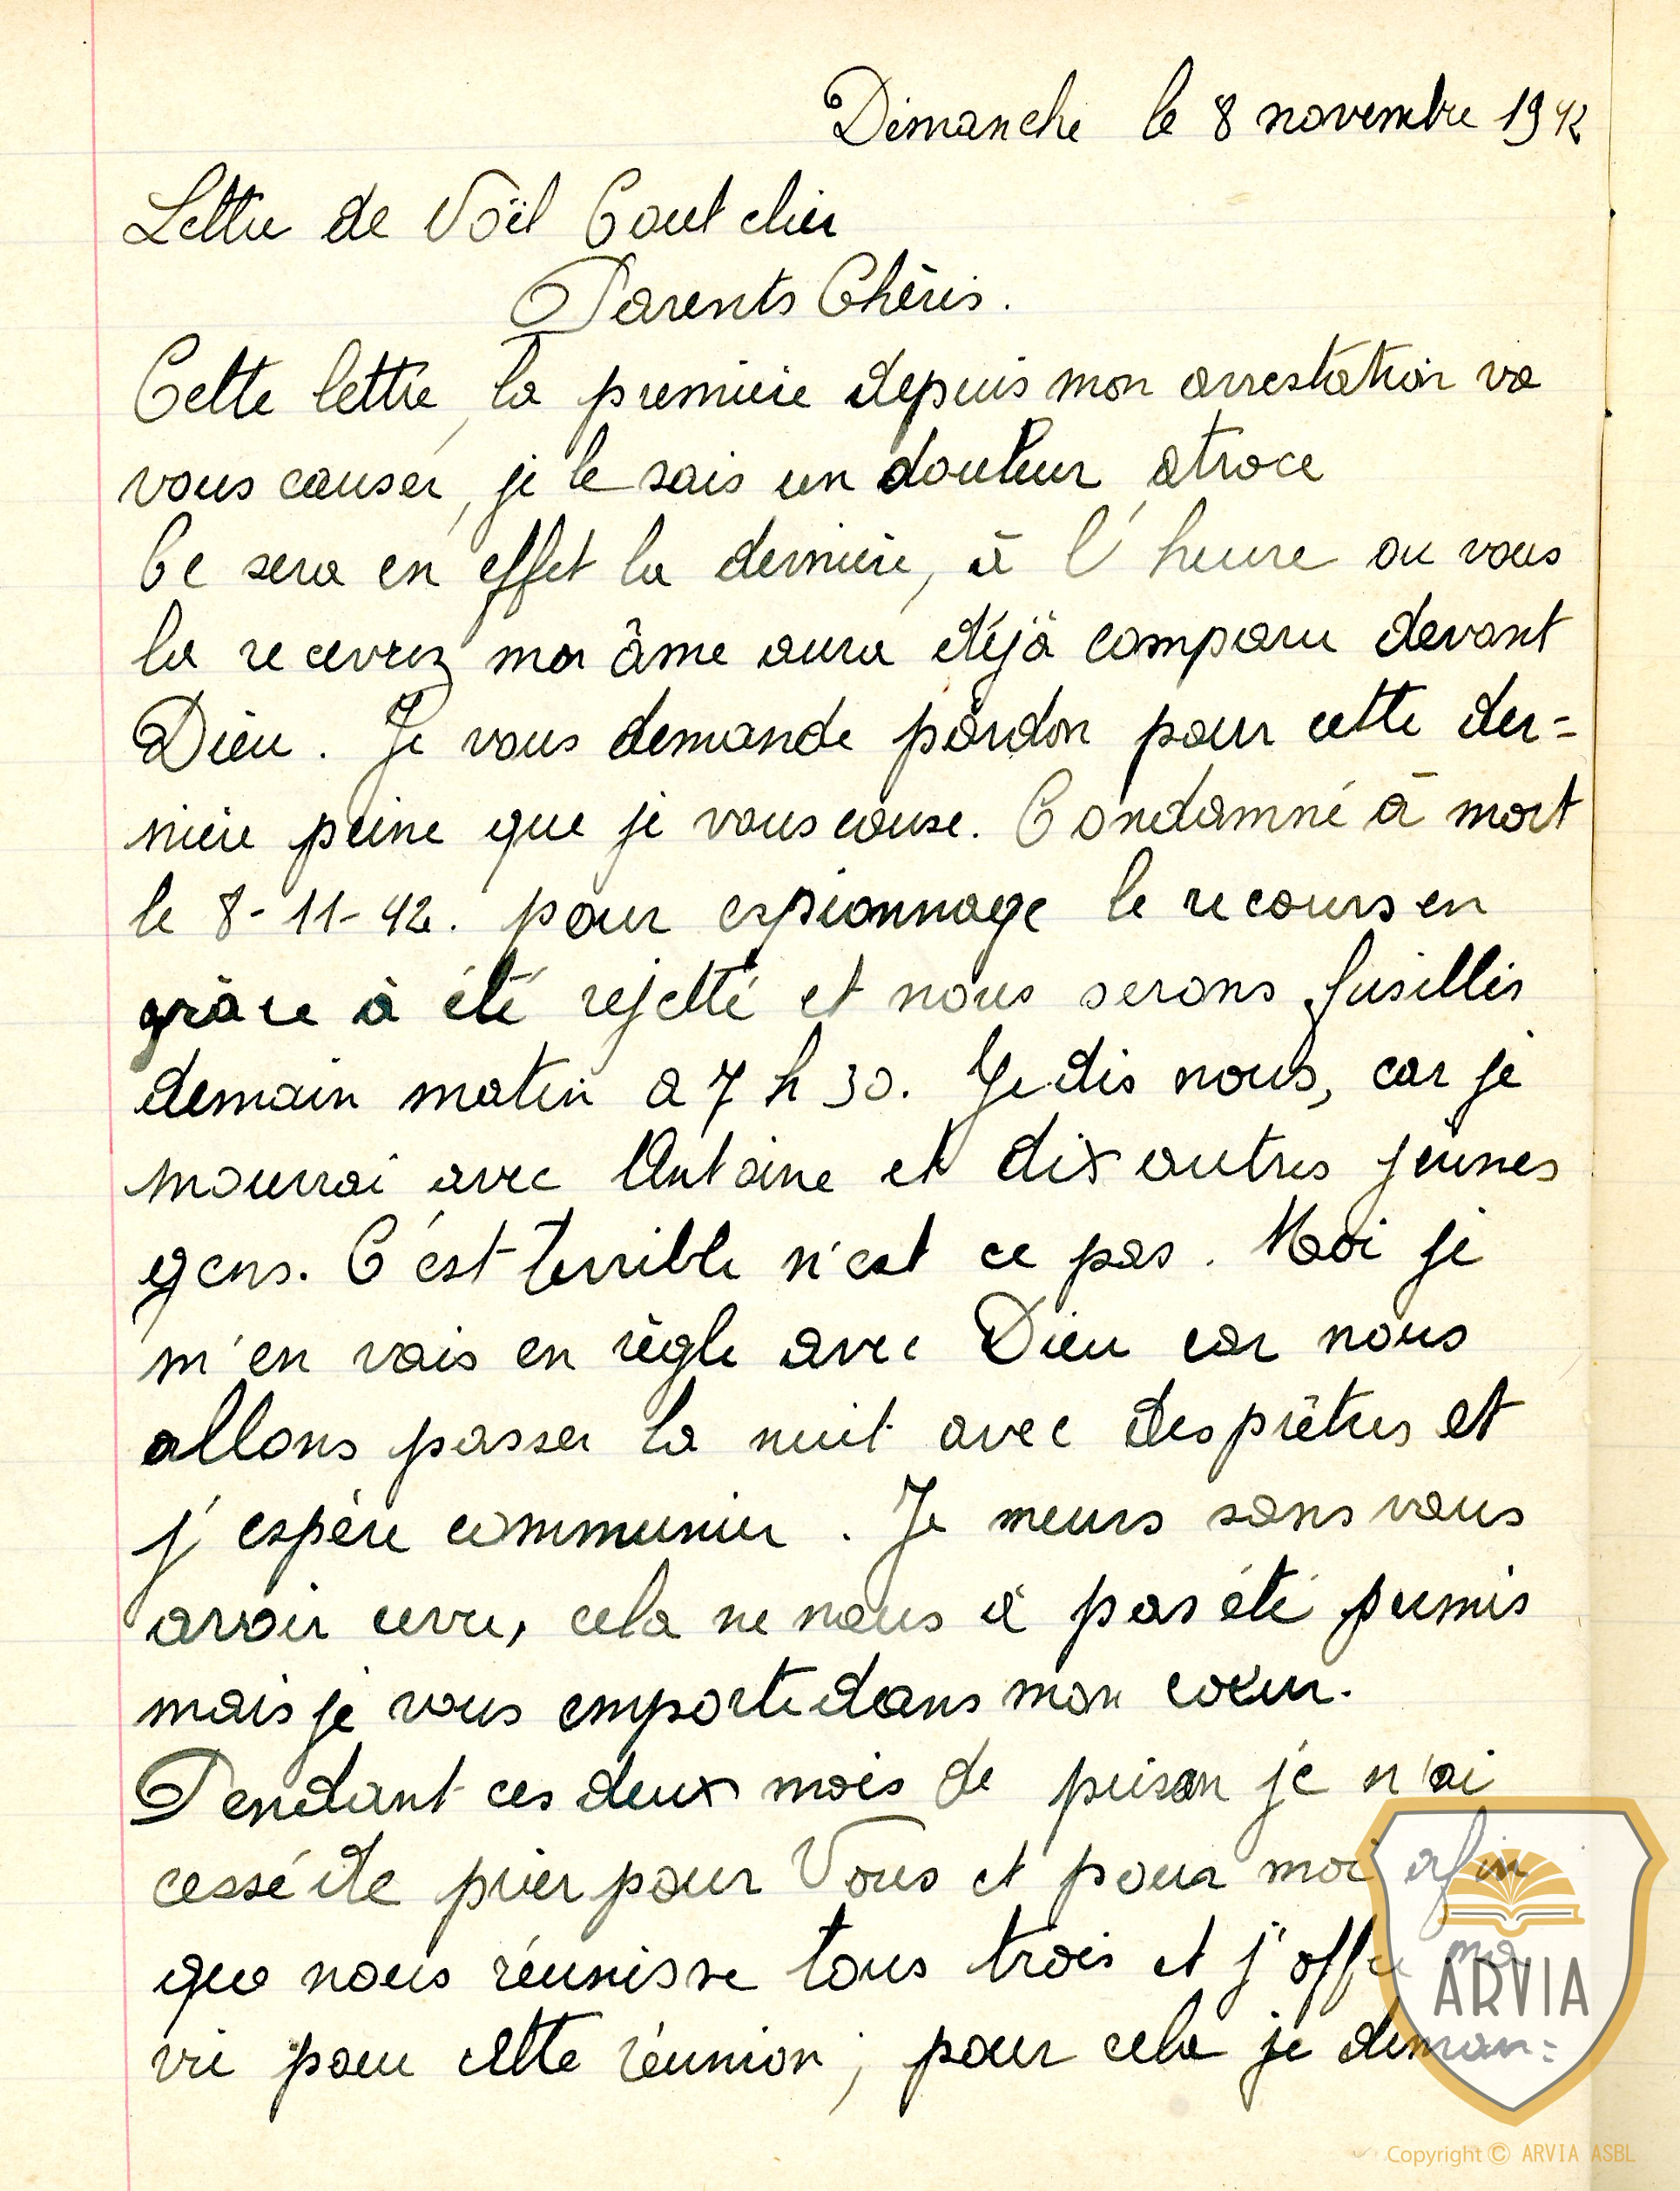 Dimanche le 8 novembre 1942
Lettre de Noël Coutelier
Parents Chéris.
Cette lettre, la première depuis mon arrestation va
vous causer, je le sais un douleur atroce
Ce sera en effet la dernière, à l'heure ou vous
la recevrez mon âme aura déjà comparu devant
Dieu. Je vous demande pardon pour cette der=
nière peine que je vous cause. Condamné à mort
le 8-11-42. pour espionnage le recours en
grâce à été rejetté et nous serons fusillés
demain matin a 7 h 30. Je dis nous, car je
mourrai avec Antoine et dix autres jeunes
gens. C'est terrible n'est ce pas. Moi je
m'en vais en règle avec Dieu car nous
allons passer la nuit avec des prêtres et
j'espère communier. Je meurs sans vous
avoir revu, cela ne nous à pas été permis
mais je vous emporte dans mon coeur.
Pendant ces deux mois de prison je n'ai
cessé de prier pour Vous et pour moi afin
que nous réunisse tous trois et j'offre ma
vie pour cette réunion, pour cela je deman=
ARVIA
Copyright © ARVIA ASBL